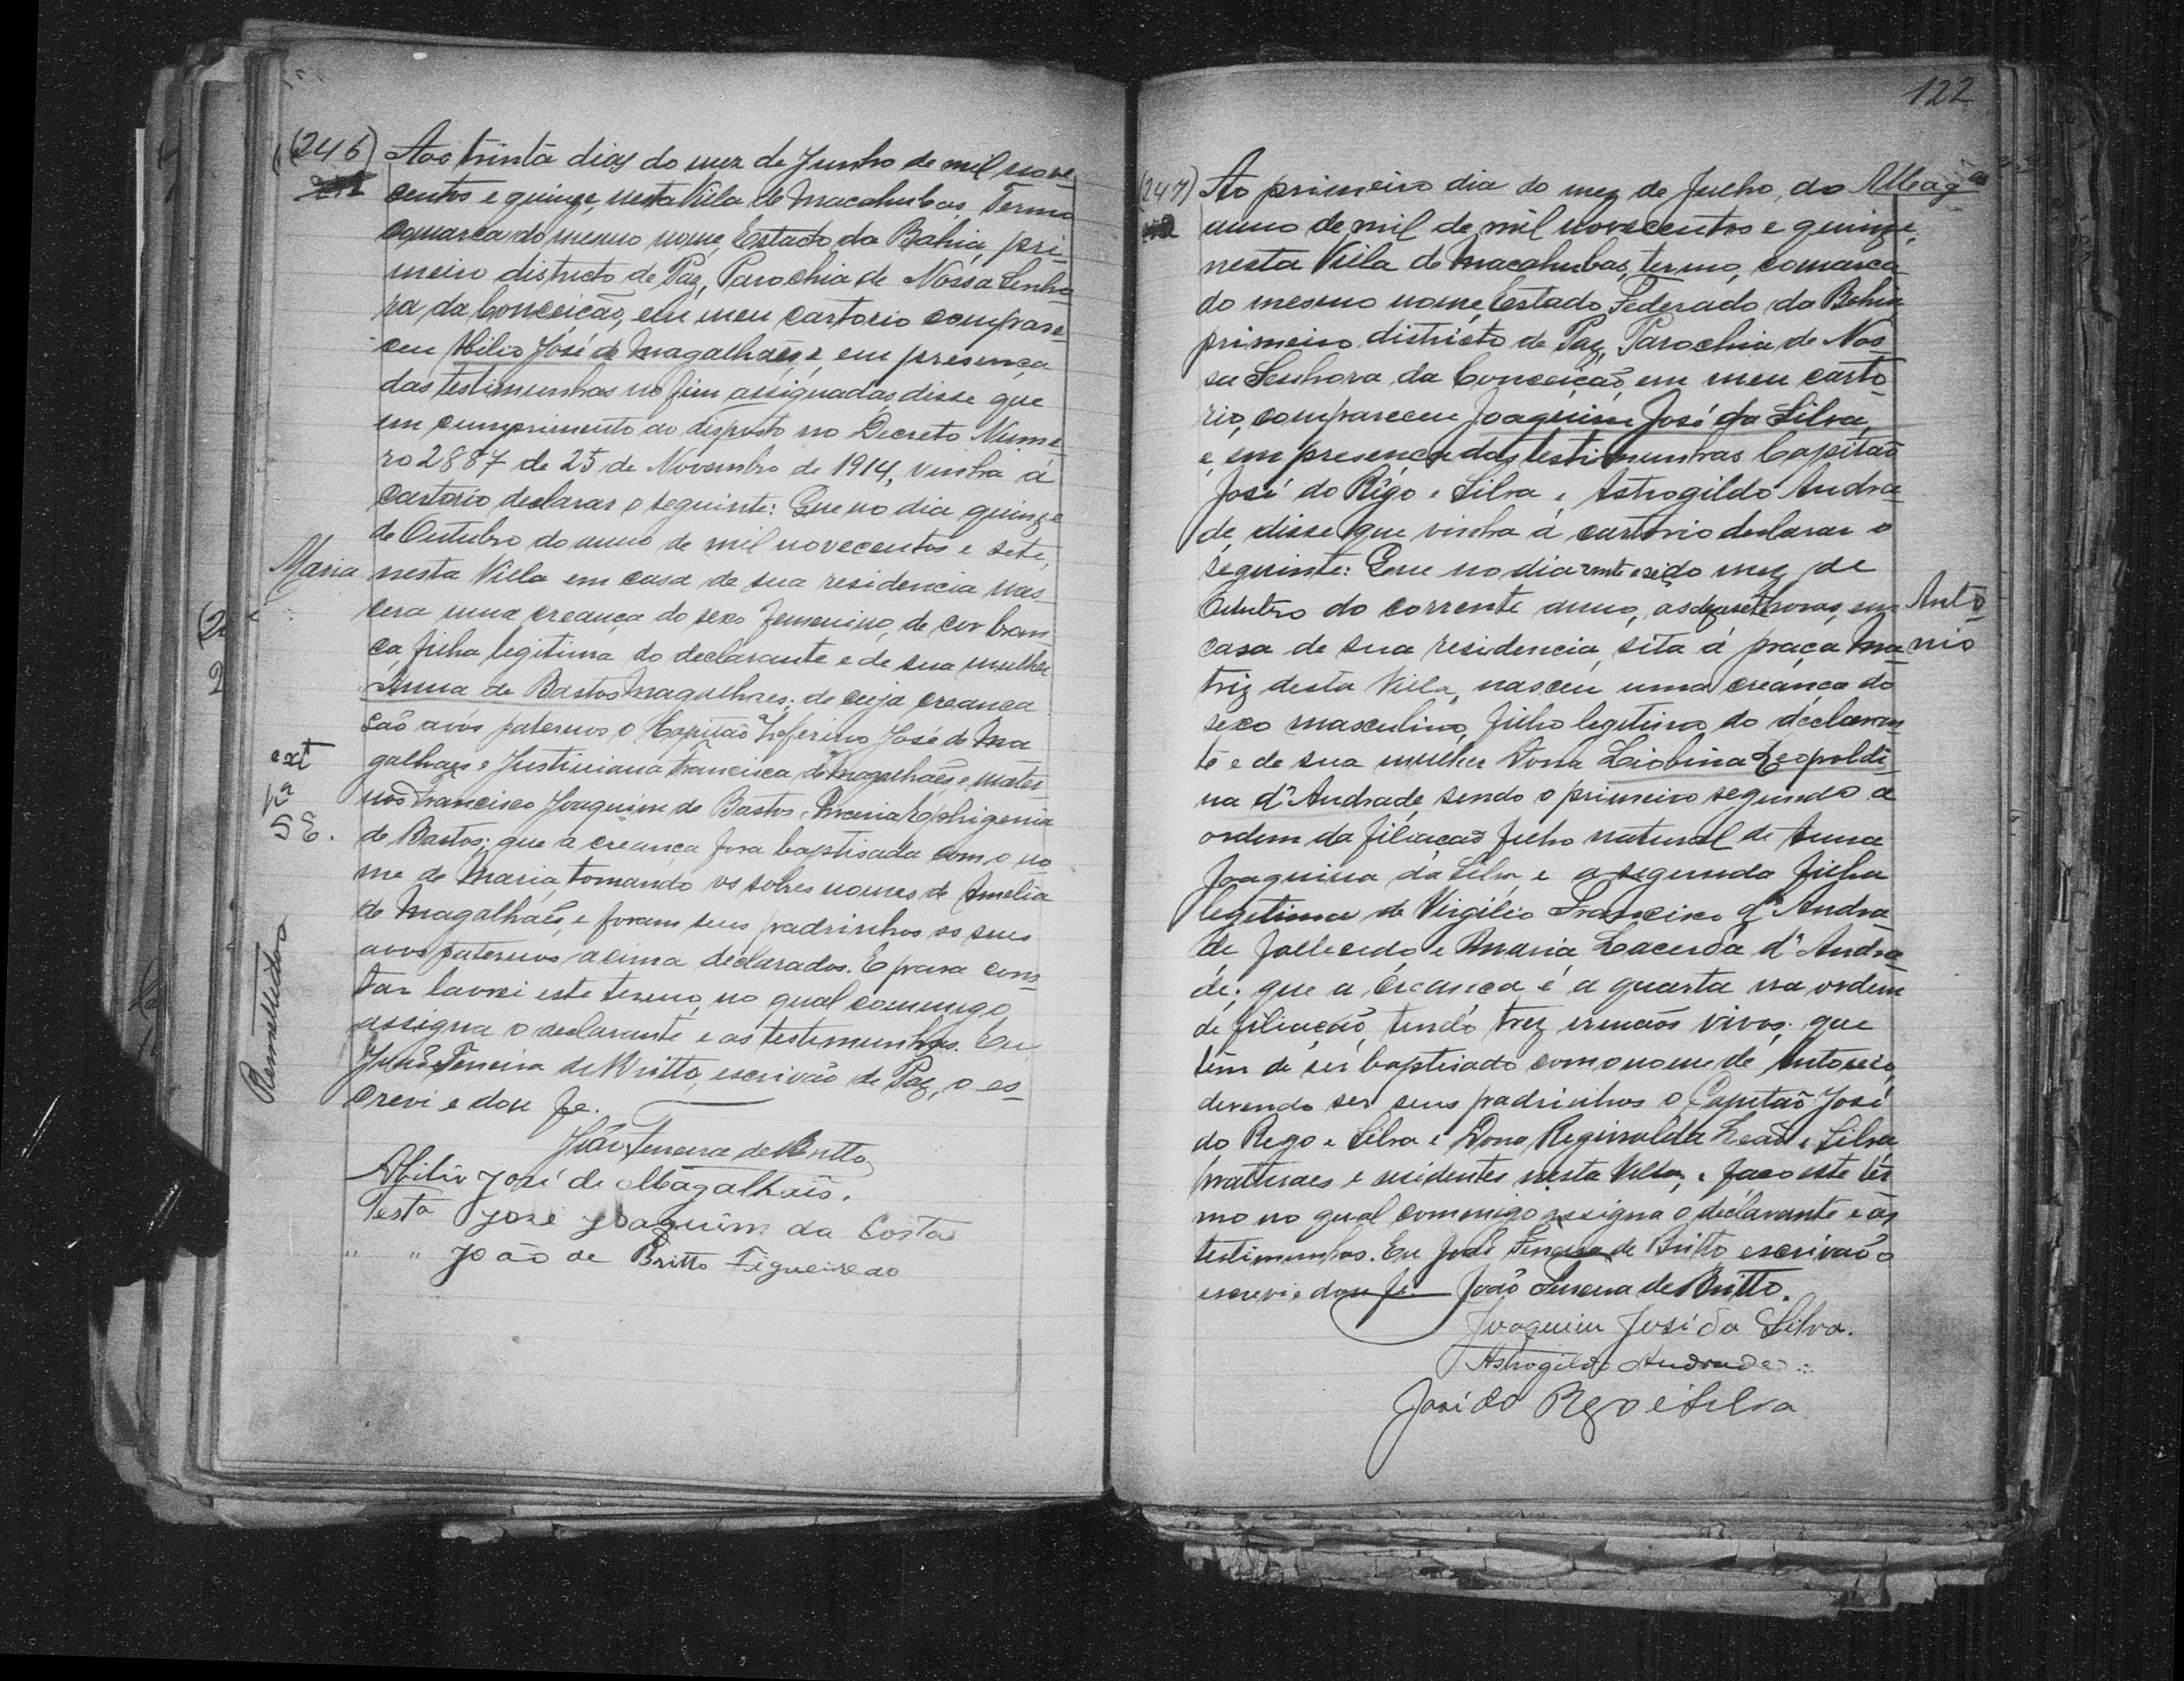 (246)
Aos trinta dias do mez de Junho de mil nove
centos e quinze, nesta Villa de Macahubas, Termo
comarca do mesmo nome, Estado da Bahia, pri-
meiro districto de Paz, Parochia de Nossa Senho
ra da Conceição, em meu cartorio compare
ceu Abilio José de Magalhães, e, em presença
das testimunhas no fim assignadas disse que
em cumprimento ao disposto no Decreto Nume
ro 2887 de 25 de Novembro de 1914, vinha á
cartorio declarar o seguinte: Que no dia quinze
de Outubro do anno de mil novecentos e sete,
Maria
nesta Villa em casa de sua residencia nas-
cera uma creança do sexo femenino, de cor bran
ca, filha legitima do declarante e de sua mulher
Anna de Bastos Magalhães; de cuja creança
são avós paternos o Capitão Zeferino José de Ma
galhães e Justiniana Francisca de Magalhães e mater
nos Francisco Joaquim de Bastos e Maria Ephigenia
de Bastos; que a creança fora baptisada com o no
me de Maria, tomando os sobres nomes de Amelia
de Magalhães, e foram seus padrinhos os seus
avos paternos acima declarados. E para cons-
tar lavrei este termo, no qual commigo
assigna o declarante e as testemunhas. Eu
João Ferreira de Britto, escrivão de Paz, o es-
crevi e dou fe.
João Ferreira de Britto
Abilio José de Magalhães.
Testa José Joaquim da Costa
" " João de Britto Figueiredo
ext
Remettido
122
(247)
Ao primeiro dia do mez de Julho, do
anno de mil de mil novecentos e quinze,
nesta Villa de Macahubas, termo, comarca
do mesmo nome, Estado Federado da Bahia
primeiro districto de Paz, Parochia de Nos
sa Senhora da Conceição, em meu carto
rio, compareceu Joaquim José da Silva,
e, em presença das testimunhas Capitão
José do Rêgo e Silva e Astrogildo Andra
de, disse que vinha á cartorio declarar o
seguinte: Que no dia do mez de
Outubro do corrente anno, horas, em
Anto
nio
casa de sua residencia, sita á praça Ma
triz desta Villa, nasceu uma creança do
sexo masculino, filho legitimo do declaran
te e de sua mulher Dona Leopoldi-
na d'Andrade, sendo o primeiro segundo a
ordem da filiação filho natural de Anna
Joaquina da Silva e a segunda filha
legitima de Virgilio Francisco d'Andra
de, fallecido e Maria Lacerda d'Andra
de; que a creança é a quarta na ordem
de filiação, tendo trez irmãos vivos; que
tem de ser baptisado com o nome de Antonio,
devendo ser seus padrinhos o Capitão José
do Rego e Silva e Dona Reginalda Leão e Silva
naturaes e residentes nesta Villa, e faço este ter
mo no qual commigo assigna o declarante e as
testimunhas. Eu João Ferreira de Britto escrivão o
escrevi e dou fe. João Ferreira de Britto.
Joaquim José da Silva.
Astrogildo Andrade
José do Rego e Silva